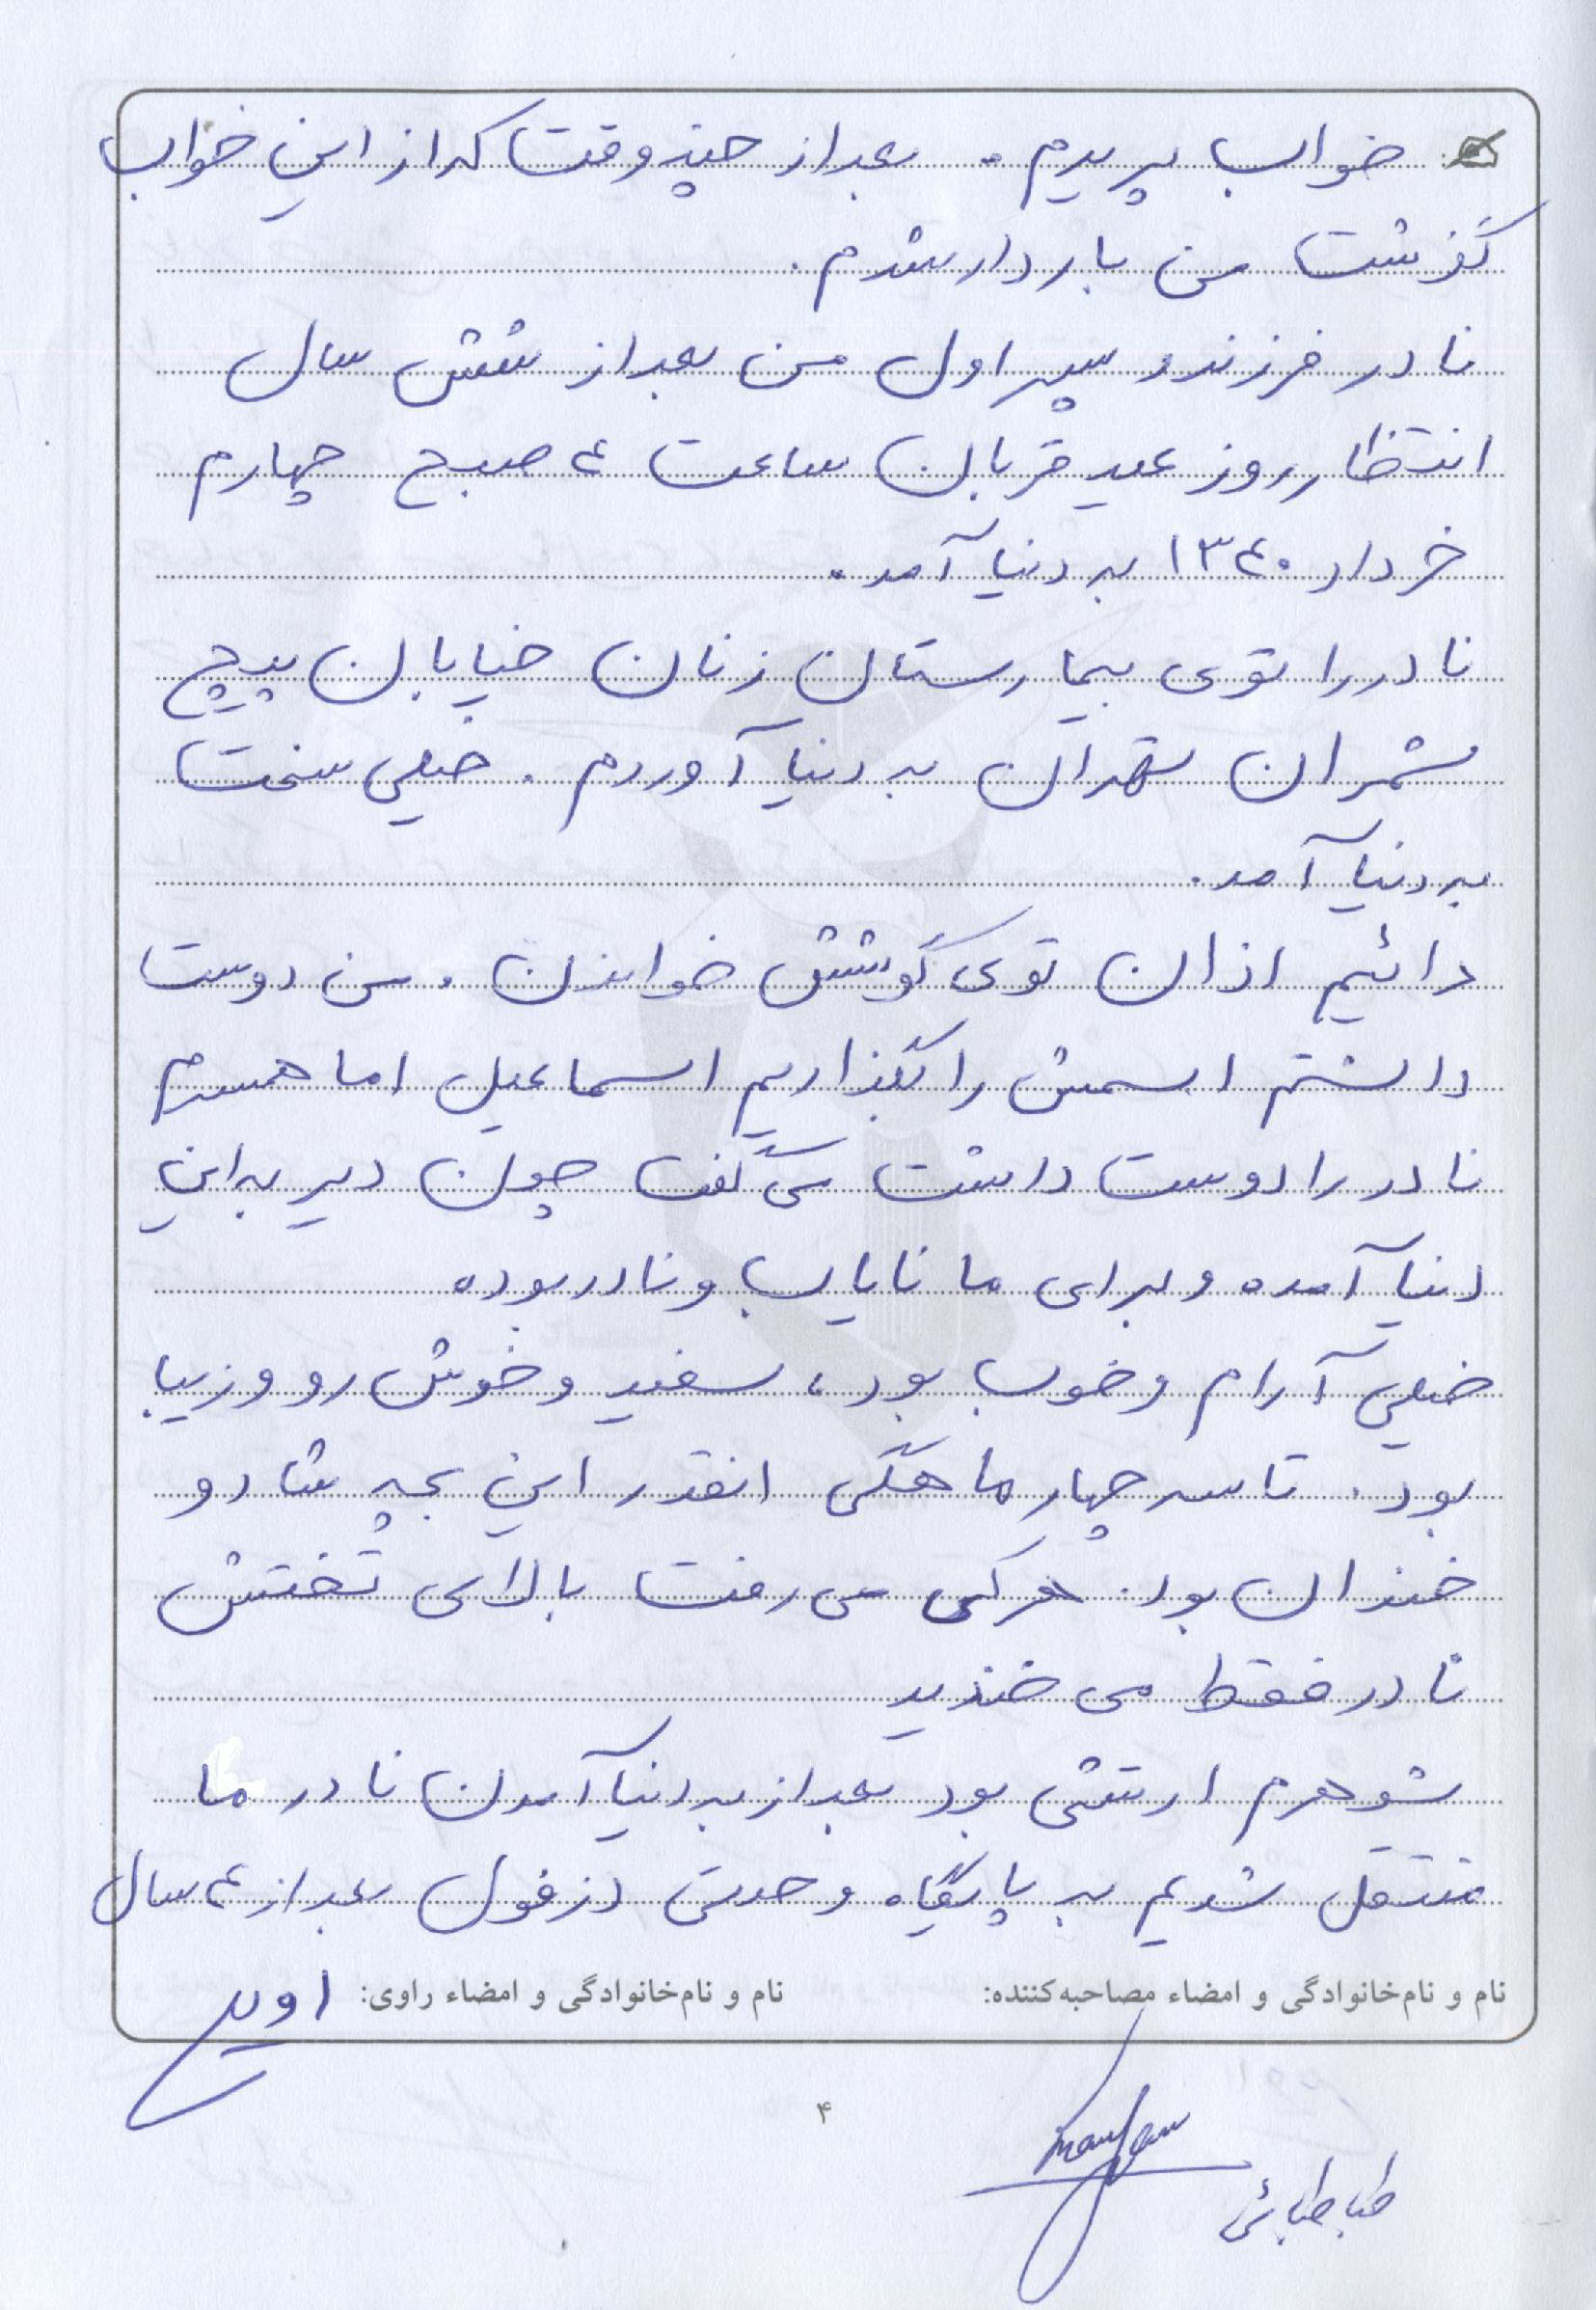 خواب پریدم. بعد از چند وقت که از این خواب
گذشت من باردار شدم.
نادر فرزند و پسر اول من بعد از شش سال
انتظار روز عید قربان ساعت ۴ صبح چهارم
خرداد ۱۳۴۰ به دنیا آمد.
نادر را توی بیمارستان زنان خیابان پیچ
شمران تهران به دنیا آوردم. خیلی سخت
به دنیا آمد.
دائیم اذان توی گوشش خواندن. من دوست
داشتم اسمش را بگذاریم اسماعیل اما همسرم
نادر را دوست داشت می گفت چون دیر به این
دنیا آمده و برای ما نایاب و نادر بوده
خیلی آرام و خوب بود، سفید و خوش رو و زیبا
بود. تا سه چهار ماهگی انقدر این بچه شاد و
خندان بود. هرکی می رفت بالای تختش
نادر فقط می خندید
شوهرم ارتشی بود بعد از به دنیا آمدن نادر ما
منتقل شدیم به پایگاه وحدتی دزفول بعد از ۴ سال
نام و نام‌خانوادگی و امضاء مصاحبه‌کننده: نام و نام‌خانوادگی و امضاء راوی:
۴
maryam
طباطبائی